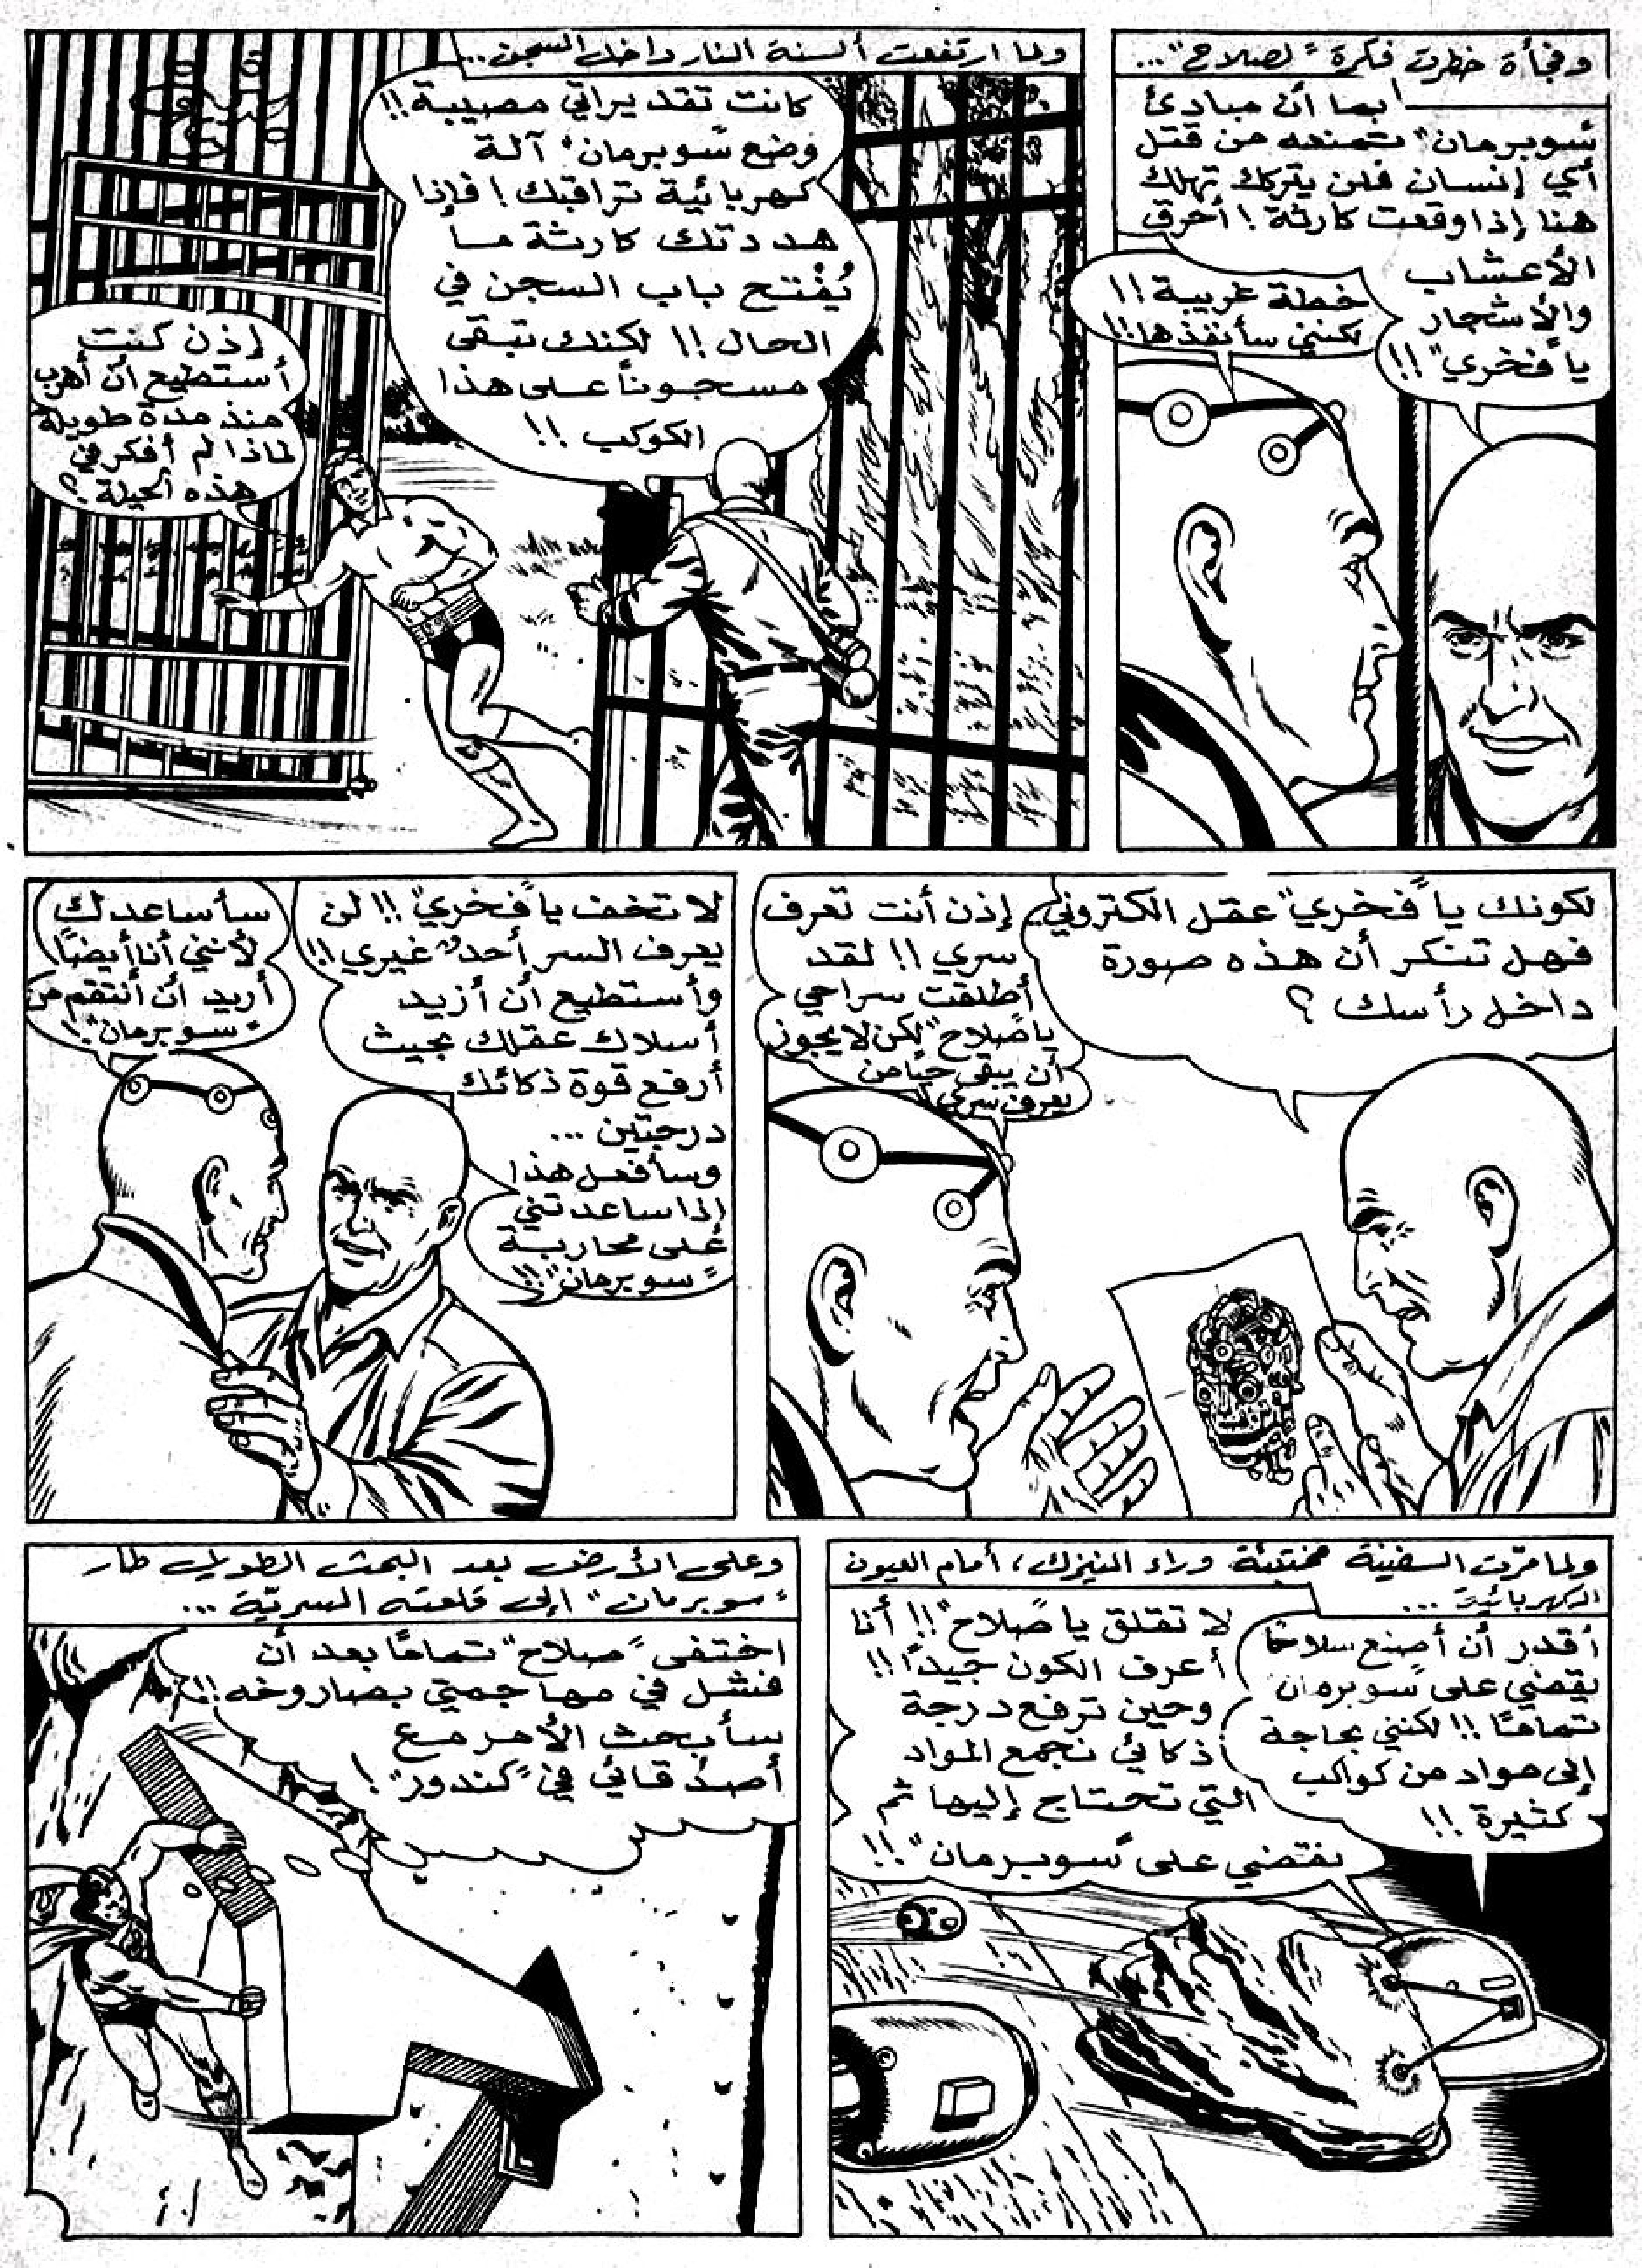 وفجأة خطرت فكرة "لصلاح"...
بما أن مبادئ
"سوبرمان" تمنعه من قتل
أي إنسان فلن يتركك تهلك
هنا إذا وقعت كارثة! أحرق
الأعشاب
والأشجار
يا "فخري"!!
خطة غريبة!!
لكنني سأنفذها!!
ولما ارتفعت ألسنة النار داخل السجن...
كانت تقديراتي مصيبة!!
وضع "سوبرمان" آلة
كهربائية تراقبك! فإذا
هددتك كارثة ما
يُفْتح باب السجن في
الحال!! لكنك تبقى
مسجوناً على هذا
الكوكب!!
إذن كنت
أستطيع أن أهرب
منذ مدة طويلة
لماذا لم أفكر في
هذه الحيلة؟
لكونك يا "فخري" عقل الكتروني
فهل تنكر أن هذه صورة
داخل رأسك؟
إذن أنت تعرف
سري!! لقد
أطلقت سراحي
يا "صلاح" لكن لا يجوز
أن يبقى حيًا من
يعرف سري!!
لا تخف يا "فخري"!! لن
يعرف السر أحد غيري!!
وأستطيع أن أزيد
أسلاك عقلك بحيث
أرفع قوة ذكائك
درجتين...
وسأفعل هذا
إذا ساعدتني
على محاربة
"سوبرمان"!!
سأساعدك
لأنني أنا أيضًا
أريد أن أنتقم من
"سوبرمان"!
ولما مرّت السفينة مختبئة وراء النيزك، أمام العيون
الكهربائية...
أقدر أن أصنع سلاحًا
يقضي على "سوبرمان"
تمامًا!! لكنني بحاجة
إلى مواد من كواكب
كثيرة!!
لا تقلق يا "صلاح"!! أنا
أعرف الكون جيدًا!!
وحين ترفع درجة
ذكائي نجمع المواد
التي تحتاج إليها ثم
نقضي على "سوبرمان"!!
وعلى الأرض بعد البحث الطويل طار
"سوبرمان" إلى قلعته السريّة...
اختفى "صلاح" تمامًا بعد أن
فشل في مهاجمتي بصاروخه!!
سأبحث الأمر مع
أصدقائي في "كندور"!